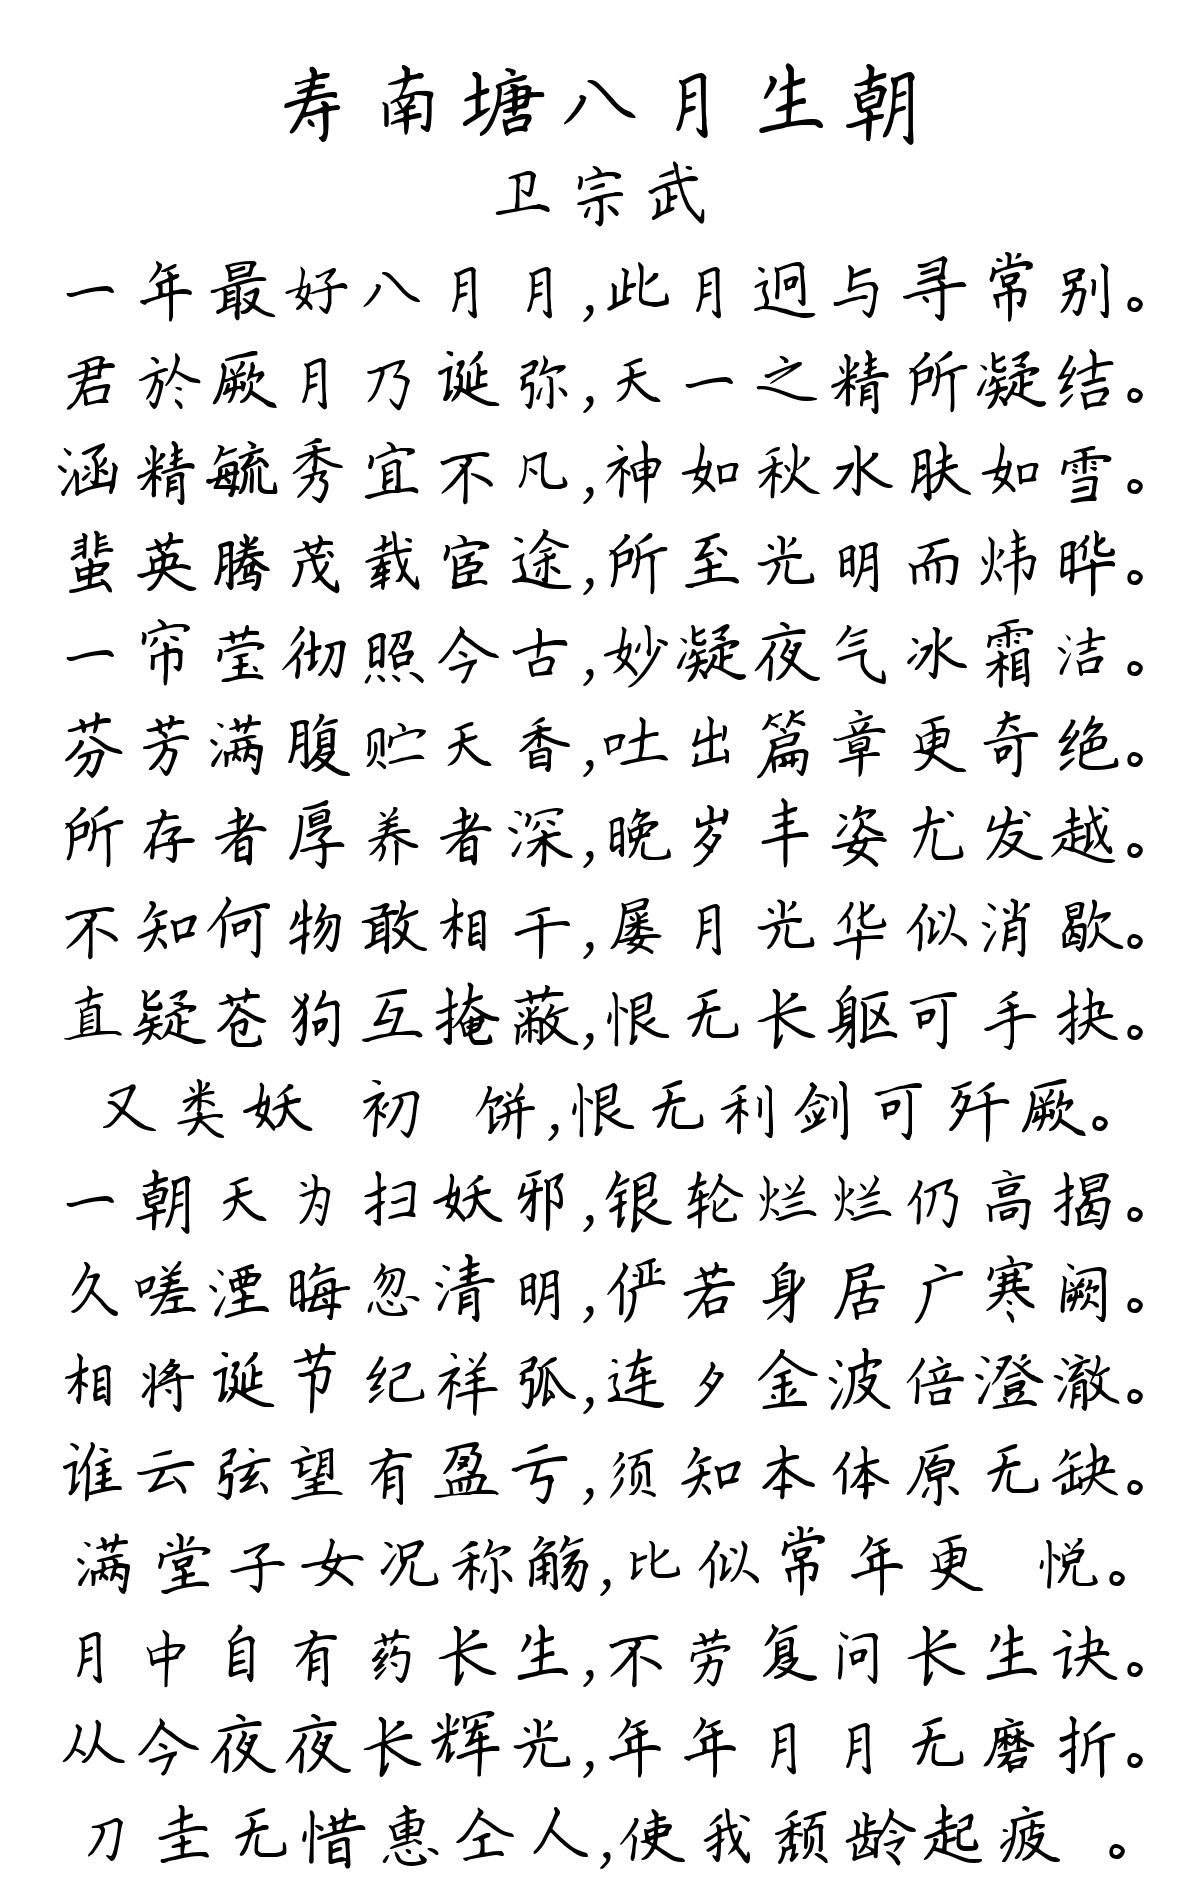 寿南塘八月生朝
卫宗武
一年最好八月月,此月迥与寻常别。
君於厥月乃诞弥,天一之精所凝结。
涵精毓秀宜不凡,神如秋水肤如雪。
蜚英腾茂载宦途,所至光明而炜晔。
一帘莹彻照今古,妙凝夜气冰霜洁。
芬芳满腹贮天香,吐出篇章更奇绝。
所存者厚养者深,晚岁丰姿尤发越。
不知何物敢相干,屡月光华似消歇。
直疑苍狗互掩蔽,恨无长躯可手抉。
又类妖 初 饼,恨无利剑可歼厥。
一朝天为扫妖邪,银轮烂烂仍高揭。
久嗟湮晦忽清明,俨若身居广寒阙。
相将诞节纪祥弧,连夕金波倍澄澈。
谁云弦望有盈亏,须知本体原无缺。
满堂子女况称觞,比似常年更 悦。
月中自有药长生,不劳复问长生诀。
从今夜夜长辉光,年年月月无磨折。
刀圭无惜惠仝人,使我颓龄起疲 。